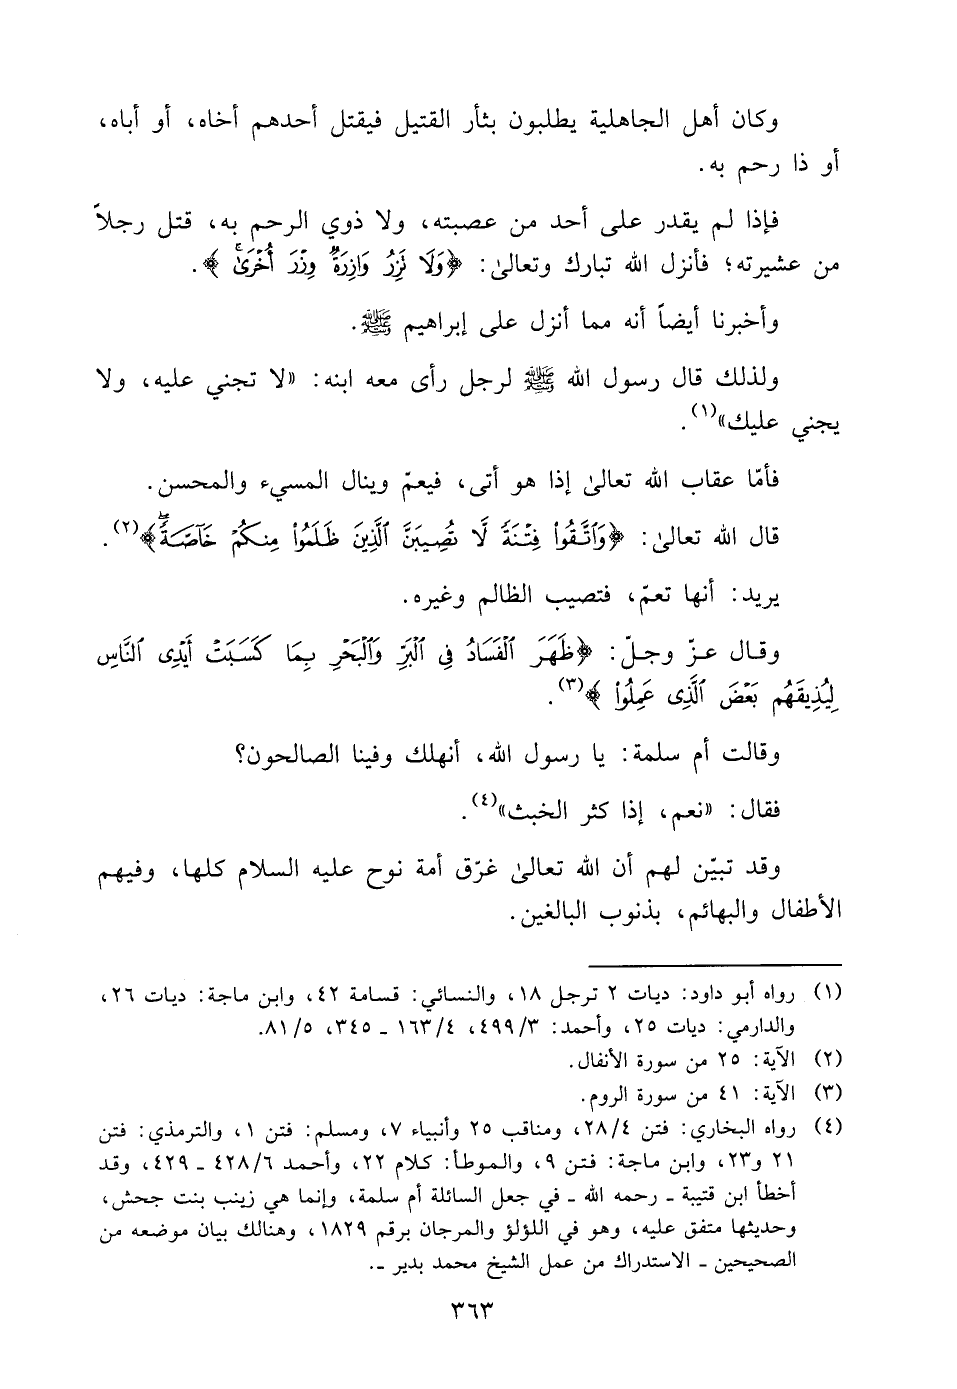 وكان أهل الجاهلية يطلبون بثأر القتيل فيقتل أحدهم أخاه، أو أباه،
أو ذا رحم به.
فإذا لم يقدر على أحد من عصبته، ولا ذوي الرحم به، قتل رجلاً
من عشيرته؛ فأنزل الله تبارك وتعالىٰ: ﴿وَلَا نَزِرُ وَازِرَةٌ وِزْرَ أُخْرَىٰۚ﴾.
وأخبرنا أيضاً أنه مما أنزل على إبراهيم ﷺ.
ولذلك قال رسول الله ﷺ لرجل رأى معه ابنه: «لا تجني عليه، ولا
يجني عليك»(١).
فأمّا عقاب الله تعالىٰ إذا هو أتى، فيعمّ وينال المسيء والمحسن.
قال الله تعالىٰ: ﴿وَاتَّقُوا۟ فِتْنَةً لَّا تُصِيبَنَّ الَّذِينَ ظَلَمُوا۟ مِنكُمْ خَآصَّةً ۖ﴾(٢).
يريد: أنها تعمّ، فتصيب الظالم وغيره.
وقال عزّ وجلّ: ﴿ظَهَرَ ٱلْفَسَادُ فِي ٱلْبَرِّ وَٱلْبَحْرِ بِمَا كَسَبَتْ أَيْدِى ٱلنَّاسِ
لِيُذِيقَهُم بَعْضَ ٱلَّذِى عَمِلُوا۟ ﴾(٣).
وقالت أم سلمة: يا رسول الله، أنهلك وفينا الصالحون؟
فقال: «نعم، إذا كثر الخبث»(٤).
وقد تبيّن لهم أن الله تعالىٰ غرّق أمة نوح عليه السلام كلها، وفيهم
الأطفال والبهائم، بذنوب البالغين.
(١) رواه أبو داود: ديات ٢ ترجل ١٨، والنسائي: قسامة ٤٢، وابن ماجة: ديات ٢٦،
والدارمي: ديات ٢٥، وأحمد: ٤٩٩/٣، ١٦٣/٤ ـ ٣٤٥، ٨١/٥.
(٢) الآية: ٢٥ من سورة الأنفال.
(٣) الآية: ٤١ من سورة الروم.
(٤) رواه البخاري: فتن ٢٨/٤، ومناقب ٢٥ وأنبياء ٧، ومسلم: فتن ١، والترمذي: فتن
٢١ و٢٣، وابن ماجة: فتن ٩، والموطأ: كلام ٢٢، وأحمد ٤٢٨/٦ ـ ٤٢٩، وقد
أخطأ ابن قتيبة ـ رحمه الله ـ في جعل السائلة أم سلمة، وإنما هي زينب بنت جحش،
وحديثها متفق عليه، وهو في اللؤلؤ والمرجان برقم ١٨٢٩، وهنالك بيان موضعه من
الصحيحين ـ الاستدراك من عمل الشيخ محمد بدير ـ.
٣٦٣